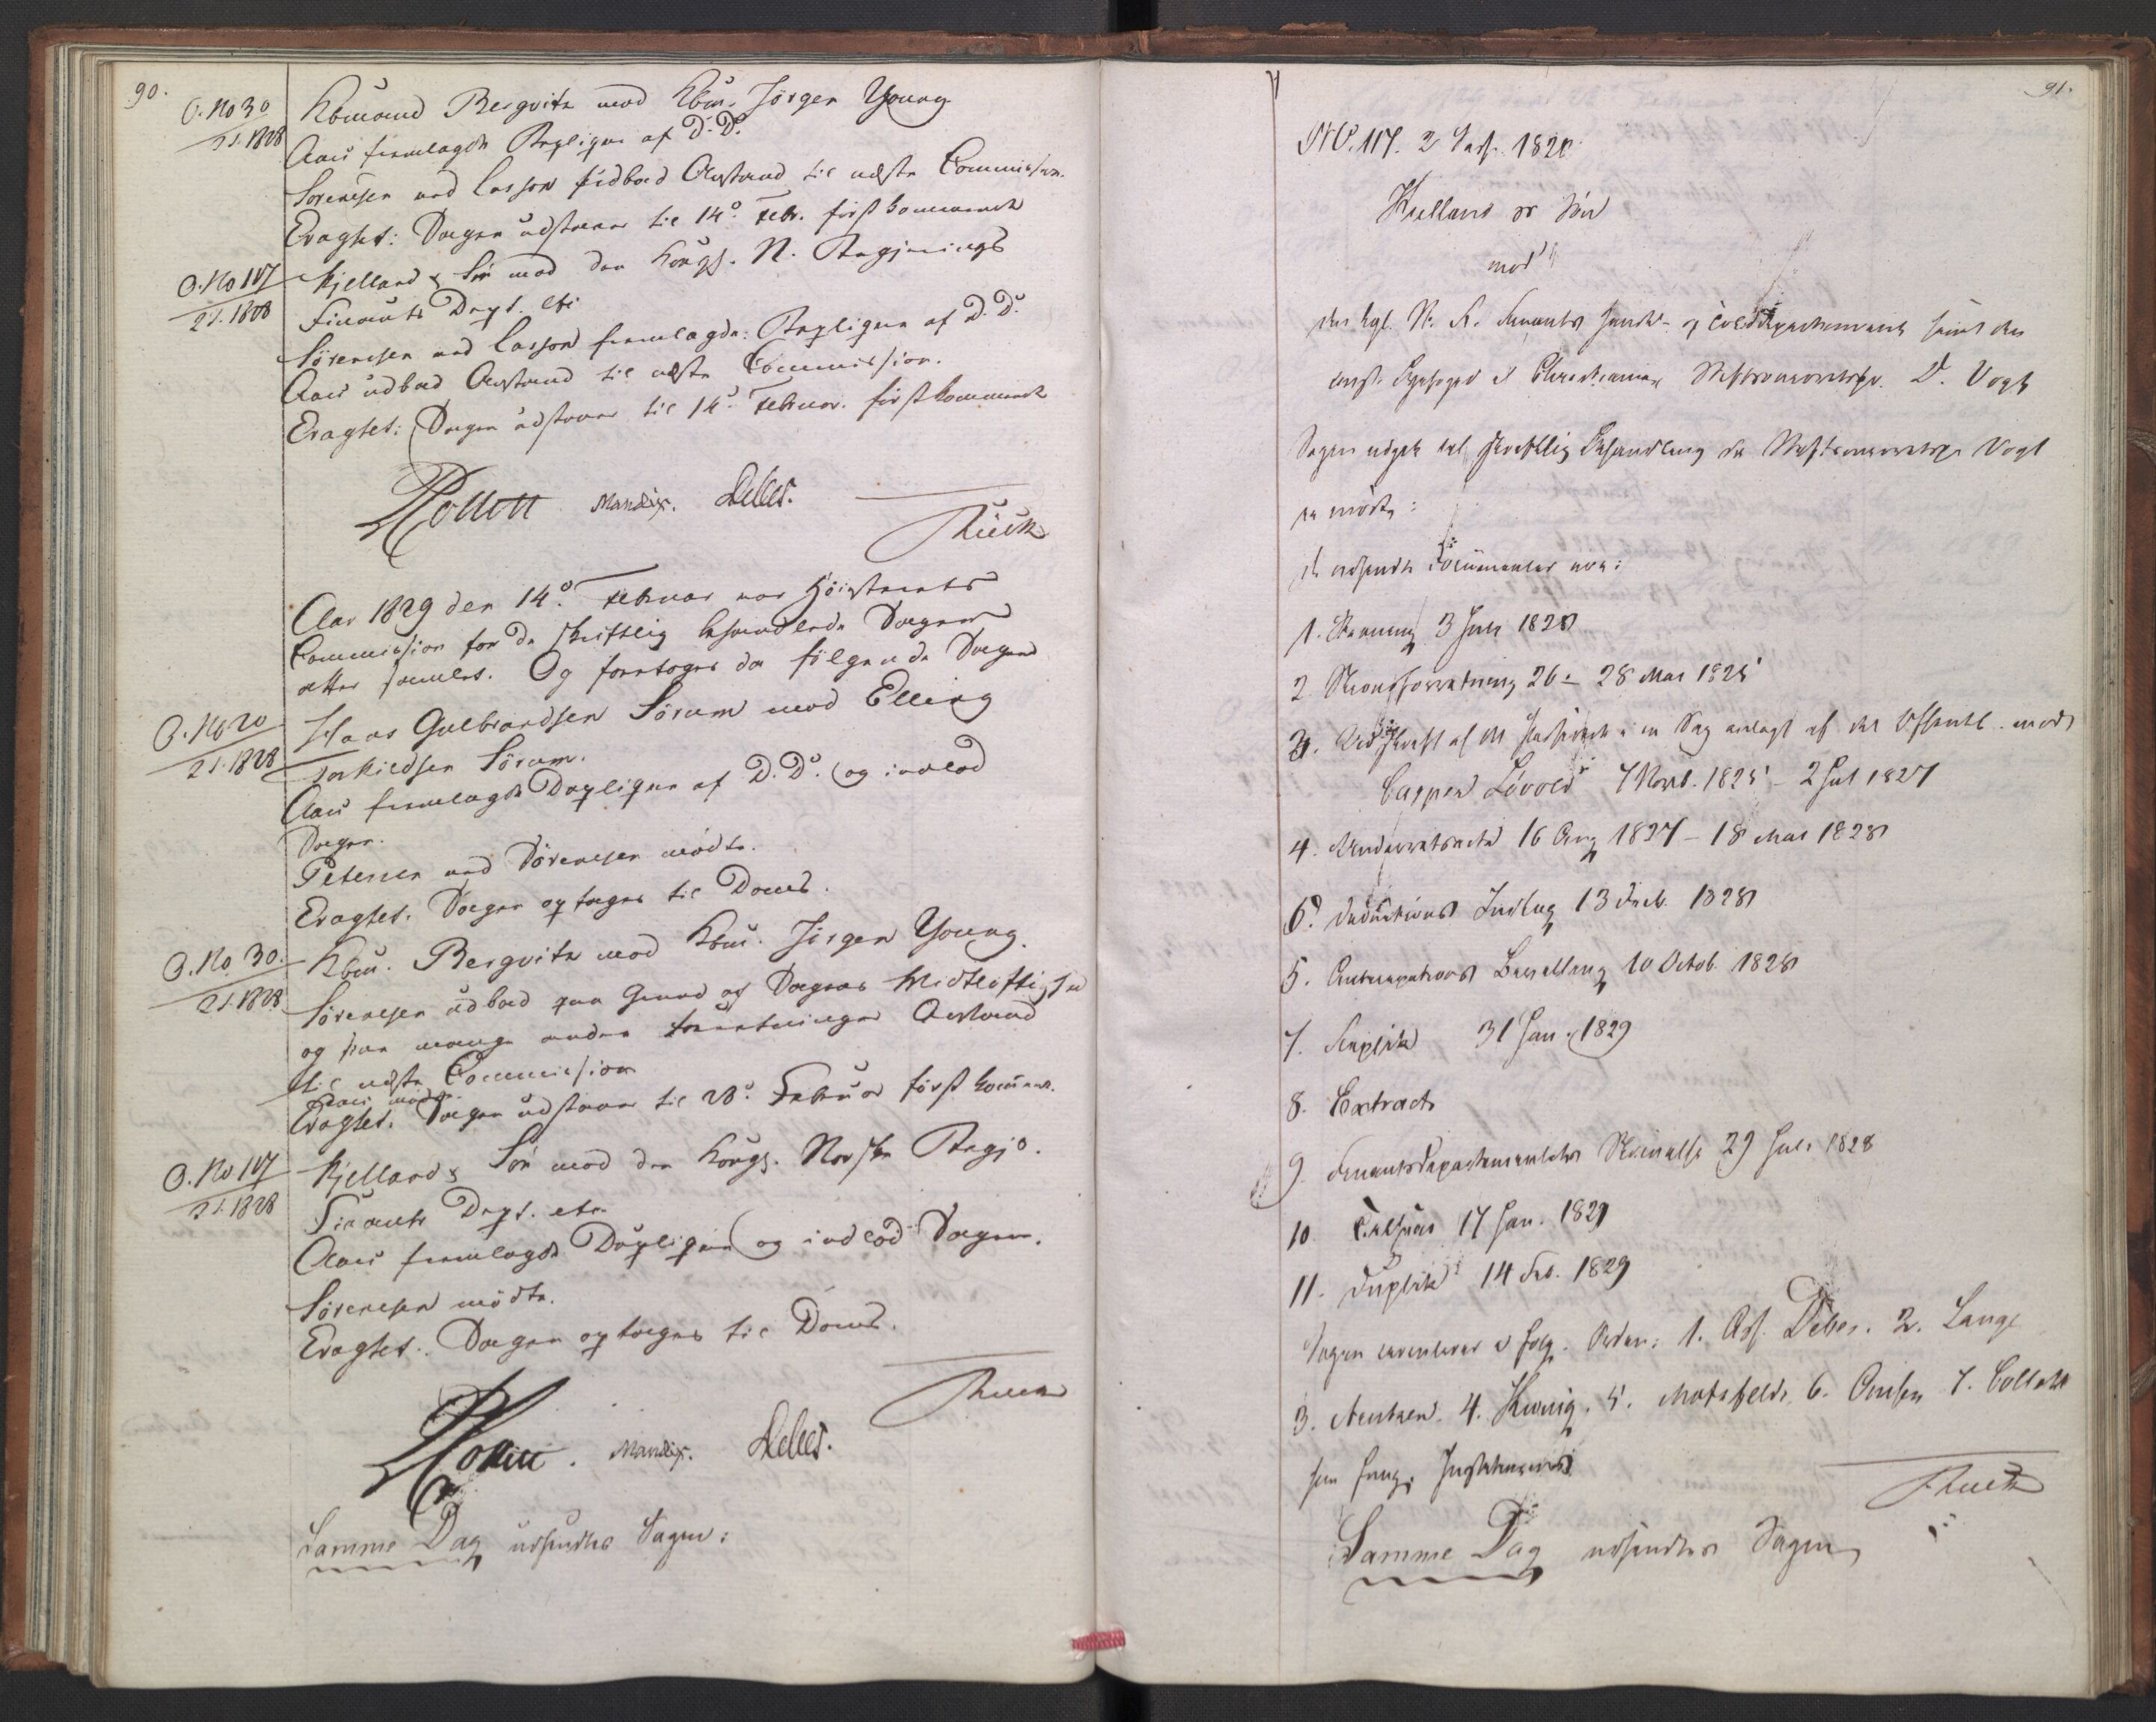 90.
O. No 30
2 S. 1828
Kbmand Bergwitz mod Kbm. Jörgen Young
Aars fremlagde Repliqve af D. D.
Sörensen ved Lasson udbad Anstand til næste Commission.
Eragtet: Sagen udstaaer til 14de Febr. förstkommende
O. No 117
2 S. 1828
Kjelland & Sön mod den Kongl. N. Regjerings
Finants Dept. etc
Sörensen ved Lasson fremlagde: Repliqve af D. D.
Aars udbad Anstand til næste Commission.
Eragtet: Sagen udstaaer til 14de Februar. förstkommende
Collett Mandix. Debes.
Aar 1829 den 14de Februar var Höiesterets
Commission for de skriftlig behandlede Sager
atter samlet. Og foretoges da fölgende Sager
O. No 20
2 S. 1828
Hans Gulbrandsen Sörum mod Elling
Torkildsen Sörum.
Aars fremlagde Dupliqve af D. D. og indlod
Sagen.
Petersen ved Sörensen mödte.
Eragtet. Sagen optages til Doms.
O. No 30.
2 S. 1828
Kbm. Bergwitz mod Kbm. Jörgen Young.
Sörensen udbad paa Grund af Sagens Vidtløftighed
og sine mange andre Forretninger Anstand
til næste Commission
Aars mødte.
Eragtet. Sagen udstaaer til 28de Februar förstkommen.
O. No 117
2 S. 1828
Kjelland & Sön mod den Kongl. Norske Regj.
Finants Dept. etc
Aars fremlagde Dupliqve og indlod Sagen.
Sörensen mödte.
Eragtet. Sagen optages til Doms.
Collett. Mandix. Debes.
Samme Dag udsendtes Sagen:
91.
No. 117. 2 Sess. 1828
Kielland og Sön
mod
det kgl. N. R. Finants Handels- og Tolddepartement samt den
Christiania D. Vogt
Sagen udgik til skriftlig Behandling da Vogt
ei mödte:
De udsendte Documenter var:
1. Stævning 3 Juli 1828
2. 26 - 28 Mai 1825
3. Udskrift af en Sag anlagt af det Offentl. mod
Casper Lövold 7 Novb. 1825 - 2 Jul 1827
4. Underretsacte 16 Aug 1827 - 18 Mai 1828
6. Deductions Indlæg 13 Decb. 1828
5. Anticipations Bevilling 10 Octob. 1828
7. Replik 31 Jan. 1829
8. Extract
9. Finantsdepartementets Skrivelse 29 Juli 1828
10. Tilsvar 17 Jan. 1829
11. Duplik 14 Feb. 1829
Sagen circulerer i følg. Orden: 1. Ass. Debes. 2. Lange
3. Aentzen. 4. Koenig. 5. Motzfeldt. 6. Omsen 7. Collett
som fung. Justitiarius
Samme Dag udsendtes Sagen